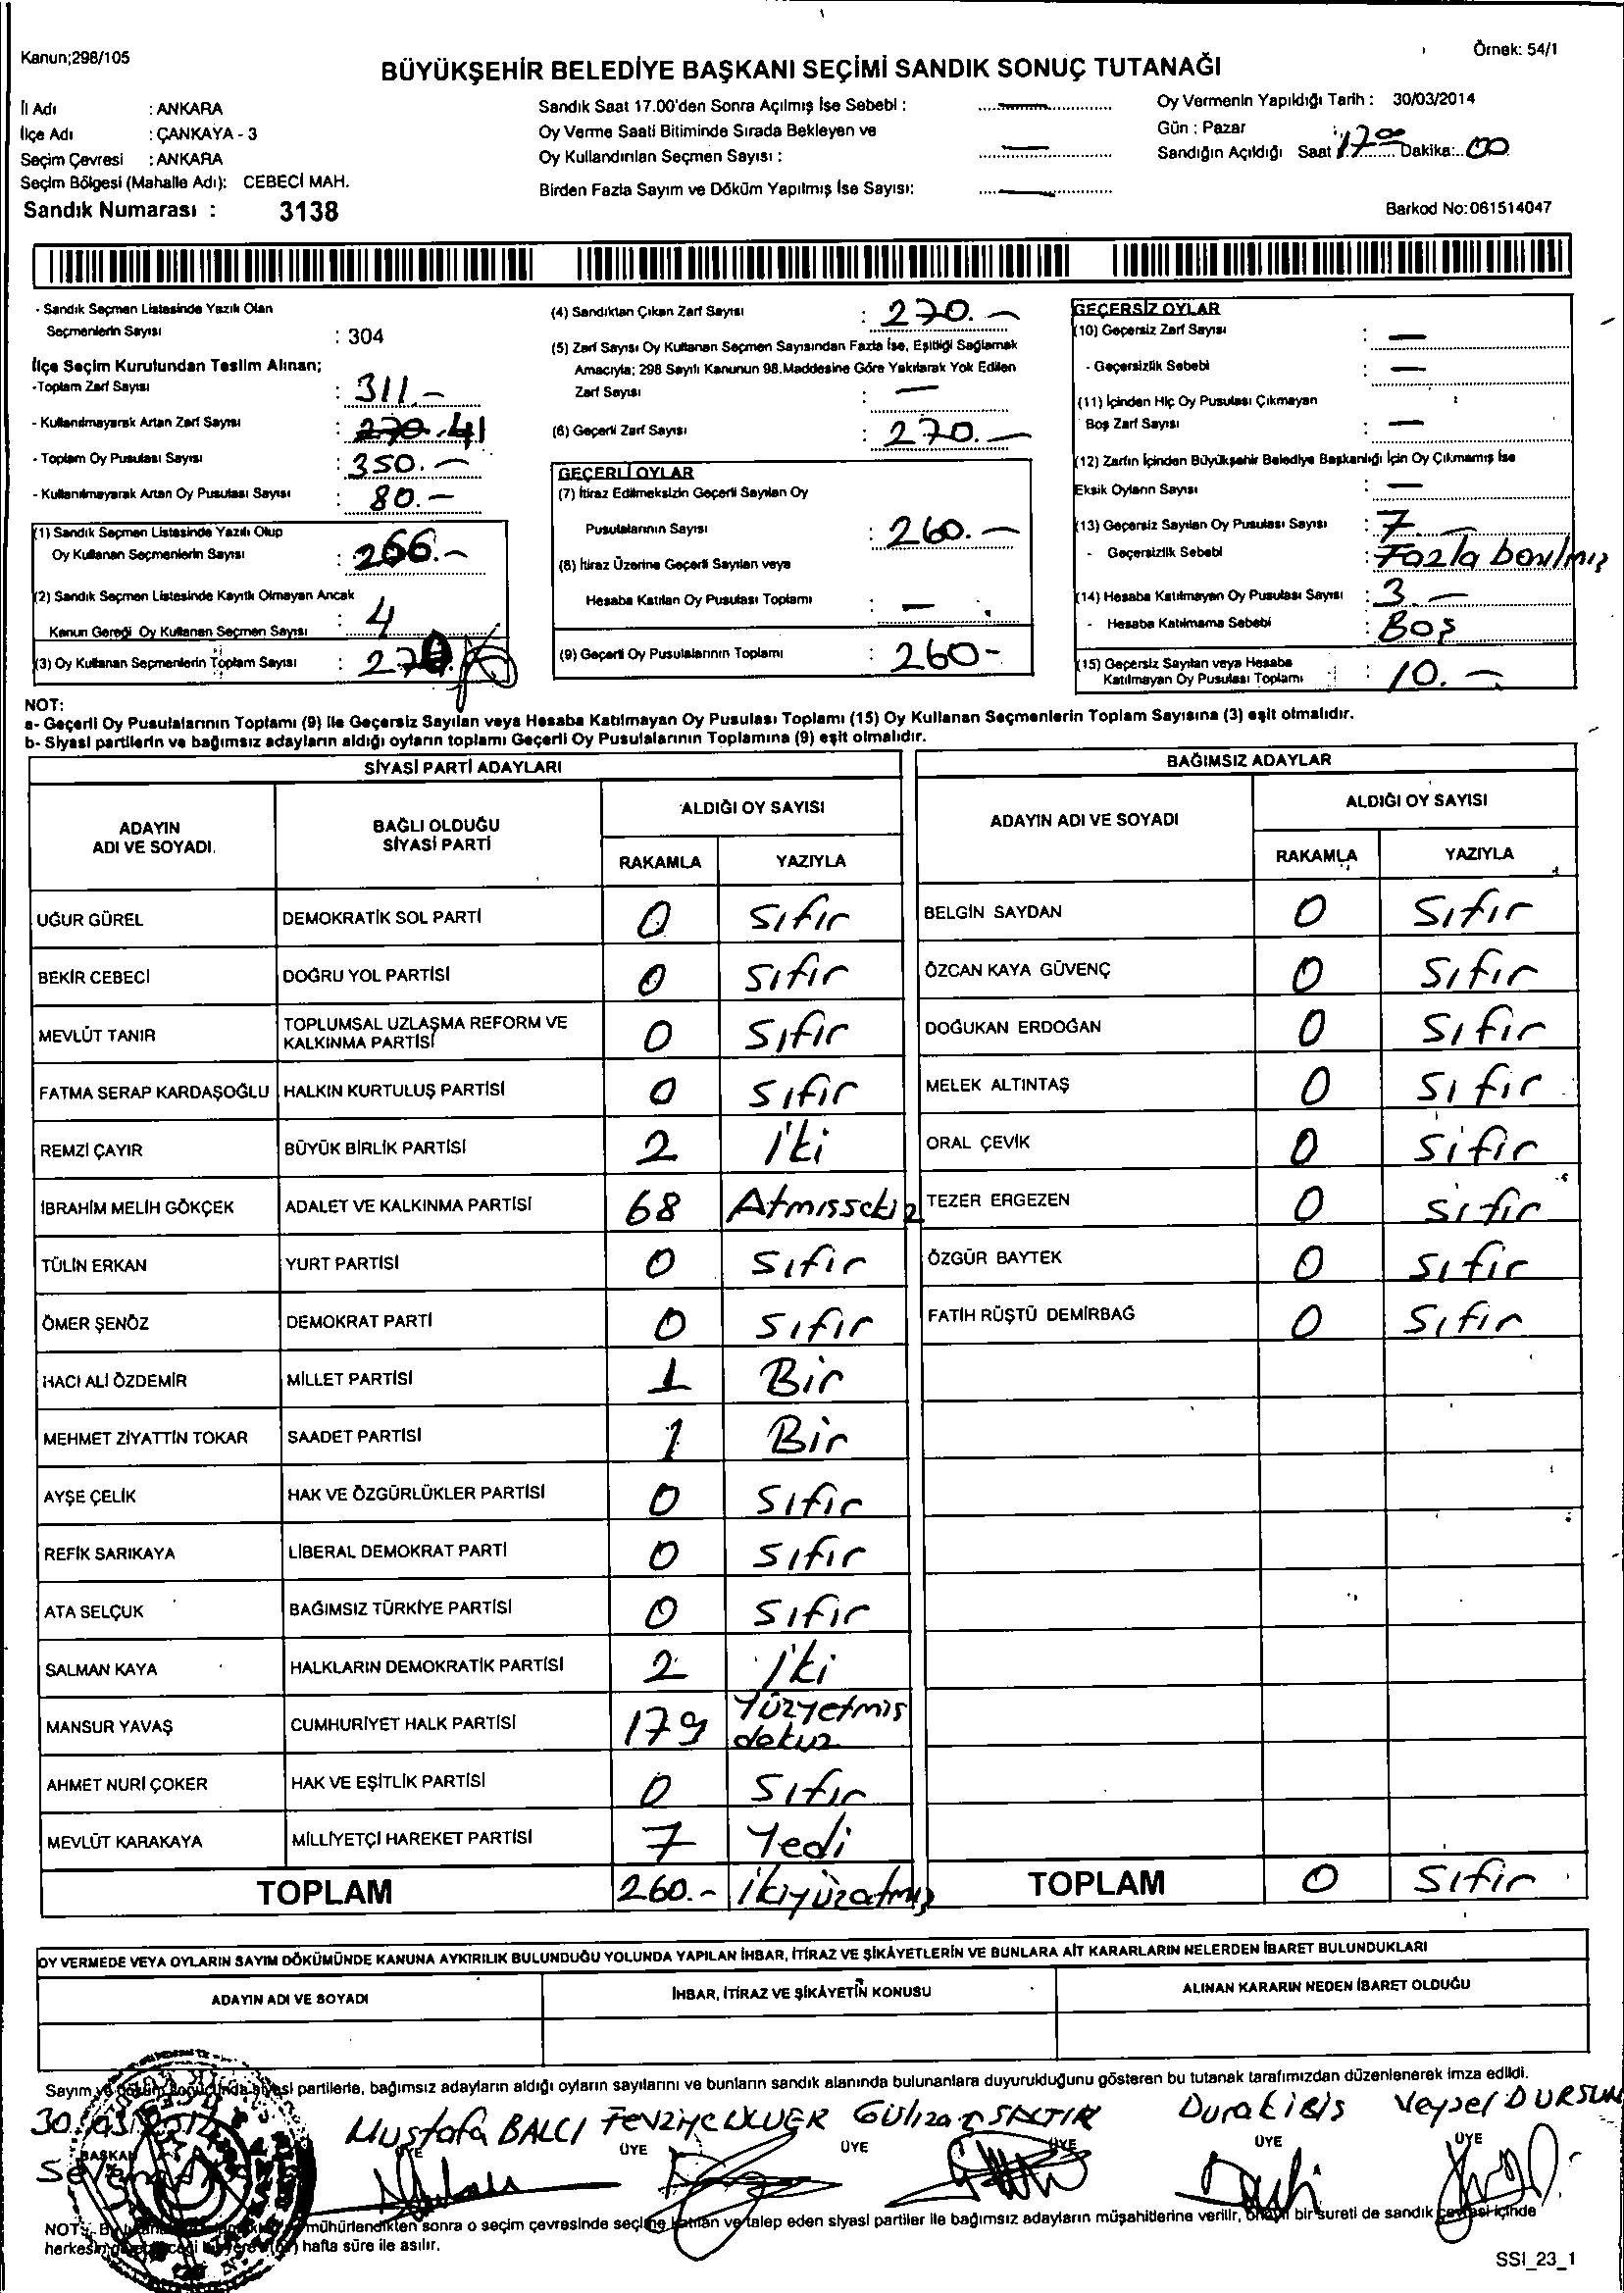 Kanun;298/105
Örnek: 54/1
BÜYÜKŞEHİR BELEDİYE BAŞKANI SEÇİMİ SANDIK SONUÇ TUTANAĞI
İl Adı : ANKARA
İlçe Adı : ÇANKAYA - 3
Seçim Çevresi : ANKARA
Seçim Bölgesi (Mahalle Adı): CEBECİ MAH.
Sandık Numarası : 3138
Sandık Saat 17.00'den Sonra Açılmış İse Sebebi :
Oy Verme Saati Bitiminde Sırada Bekleyen ve
Oy Kullandırılan Seçmen Sayısı :
Birden Fazla Sayım ve Döküm Yapılmış İse Sayısı:
Oy Vermenin Yapıldığı Tarih : 30/03/2014
Gün : Pazar
Sandığın Açıldığı Saat 17 00 Dakika:..00
Barkod No:061514047
- Sandık Seçmen Listesinde Yazılı Olan
Seçmenlerin Sayısı : 304
İlçe Seçim Kurulundan Teslim Alınan;
-Toplam Zarf Sayısı : 311.-
- Kullanılmayarak Artan Zarf Sayısı : 270 41
- Toplam Oy Pusulası Sayısı : 350.-
- Kullanılmayarak Artan Oy Pusulası Sayısı : 80.-
(1) Sandık Seçmen Listesinde Yazılı Olup
Oy Kullanan Seçmenlerin Sayısı : 266.-
(2) Sandık Seçmen Listesinde Kayıtlı Olmayan Ancak
Kanun Gereği Oy Kullanan Seçmen Sayısı : 4
(3) Oy Kullanan Seçmenlerin Toplam Sayısı : 270.
(4) Sandıktan Çıkan Zarf Sayısı : 270.-
(5) Zarf Sayısı Oy Kullanan Seçmen Sayısından Fazla İse, Eşitliği Sağlamak
Amacıyla; 298 Sayılı Kanunun 98.Maddesine Göre Yakılarak Yok Edilen
Zarf Sayısı : -
(6) Geçerli Zarf Sayısı : 270.-
GEÇERLİ OYLAR
(7) İtiraz Edilmeksizin Geçerli Sayılan Oy
Pusulalarının Sayısı : 260.-
(8) İtiraz Üzerine Geçerli Sayılan veya
Hesaba Katılan Oy Pusulası Toplamı : -
(9) Geçerli Oy Pusulalarının Toplamı : 260-
GEÇERSİZ OYLAR
(10) Geçersiz Zarf Sayısı : -
- Geçersizlik Sebebi : -
(11) İçinden Hiç Oy Pusulası Çıkmayan
Boş Zarf Sayısı : -
(12) Zarfın İçinden Büyükşehir Belediye Başkanlığı İçin Oy Çıkmamış İse
Eksik Oyların Sayısı : -
(13) Geçersiz Sayılan Oy Pusulası Sayısı : 7.-
- Geçersizlik Sebebi : Fazla basılmış
(14) Hesaba Katılmayan Oy Pusulası Sayısı : 3.-
- Hesaba Katılmama Sebebi : Boş
(15) Geçersiz Sayılan veya Hesaba
Katılmayan Oy Pusulası Toplamı : 10.-
NOT:
a- Geçerli Oy Pusulalarının Toplamı (9) ile Geçersiz Sayılan veya Hesaba Katılmayan Oy Pusulası Toplamı (15) Oy Kullanan Seçmenlerin Toplam Sayısına (3) eşit olmalıdır.
b- Siyasi partilerin ve bağımsız adayların aldığı oyların toplamı Geçerli Oy Pusulalarının Toplamına (9) eşit olmalıdır.
SİYASİ PARTİ ADAYLARI
ADAYIN ADI VE SOYADI. BAĞLI OLDUĞU SİYASİ PARTİ ALDIĞI OY SAYISI
RAKAMLA YAZIYLA
UĞUR GÜREL DEMOKRATİK SOL PARTİ 0 Sıfır
BEKİR CEBECİ DOĞRU YOL PARTİSİ 0 Sıfır
MEVLÜT TANIR TOPLUMSAL UZLAŞMA REFORM VE KALKINMA PARTİSİ 0 Sıfır
FATMA SERAP KARDAŞOĞLU HALKIN KURTULUŞ PARTİSİ 0 Sıfır
REMZİ ÇAYIR BÜYÜK BİRLİK PARTİSİ 2 İki
İBRAHİM MELİH GÖKÇEK ADALET VE KALKINMA PARTİSİ 68 Atmışsekiz
TÜLİN ERKAN YURT PARTİSİ 0 Sıfır
ÖMER ŞENÖZ DEMOKRAT PARTİ 0 Sıfır
HACI ALİ ÖZDEMİR MİLLET PARTİSİ 1 Bir
MEHMET ZİYATTİN TOKAR SAADET PARTİSİ 1 Bir
AYŞE ÇELİK HAK VE ÖZGÜRLÜKLER PARTİSİ 0 Sıfır
REFİK SARIKAYA LİBERAL DEMOKRAT PARTİ 0 Sıfır
ATA SELÇUK BAĞIMSIZ TÜRKİYE PARTİSİ 0 Sıfır
SALMAN KAYA HALKLARIN DEMOKRATİK PARTİSİ 2 İki
MANSUR YAVAŞ CUMHURİYET HALK PARTİSİ 179 Yüzyetmiş dokuz
AHMET NURİ ÇOKER HAK VE EŞİTLİK PARTİSİ 0 Sıfır
MEVLÜT KARAKAYA MİLLİYETÇİ HAREKET PARTİSİ 7 Yedi
TOPLAM 260.- İkiyüzatmış
BAĞIMSIZ ADAYLAR
ADAYIN ADI VE SOYADI ALDIĞI OY SAYISI
RAKAMLA YAZIYLA
BELGİN SAYDAN 0 Sıfır
ÖZCAN KAYA GÜVENÇ 0 Sıfır
DOĞUKAN ERDOĞAN 0 Sıfır
MELEK ALTINTAŞ 0 Sıfır
ORAL ÇEVİK 0 Sıfır
TEZER ERGEZEN 0 Sıfır
ÖZGÜR BAYTEK 0 Sıfır
FATİH RÜŞTÜ DEMİRBAĞ 0 Sıfır
TOPLAM 0 Sıfır
OY VERMEDE VEYA OYLARIN SAYIM DÖKÜMÜNDE KANUNA AYKIRILIK BULUNDUĞU YOLUNDA YAPILAN İHBAR, İTİRAZ VE ŞİKÂYETLERİN VE BUNLARA AİT KARARLARIN NELERDEN İBARET BULUNDUKLARI
ADAYIN ADI VE SOYADI İHBAR, İTİRAZ VE ŞİKÂYETİN KONUSU ALINAN KARARIN NEDEN İBARET OLDUĞU
Sayım ve döküm sonucunda siyasi partilerle, bağımsız adayların aldığı oyların sayılarını ve bunların sandık alanında bulunanlara duyurulduğunu gösteren bu tutanak tarafımızdan düzenlenerek imza edildi.
Mustafa BALCI Güliza Veysel DURSUN
BAŞKAN ÜYE ÜYE ÜYE ÜYE ÜYE ÜYE
NOT: mühürlendikten sonra o seçim çevresinde seçime katılan ve talep eden siyasi partiler ile bağımsız adayların müşahitlerine verilir, onaylı bir sureti de sandık çevresi içinde
hafta süre ile asılır.
SSI_23_1